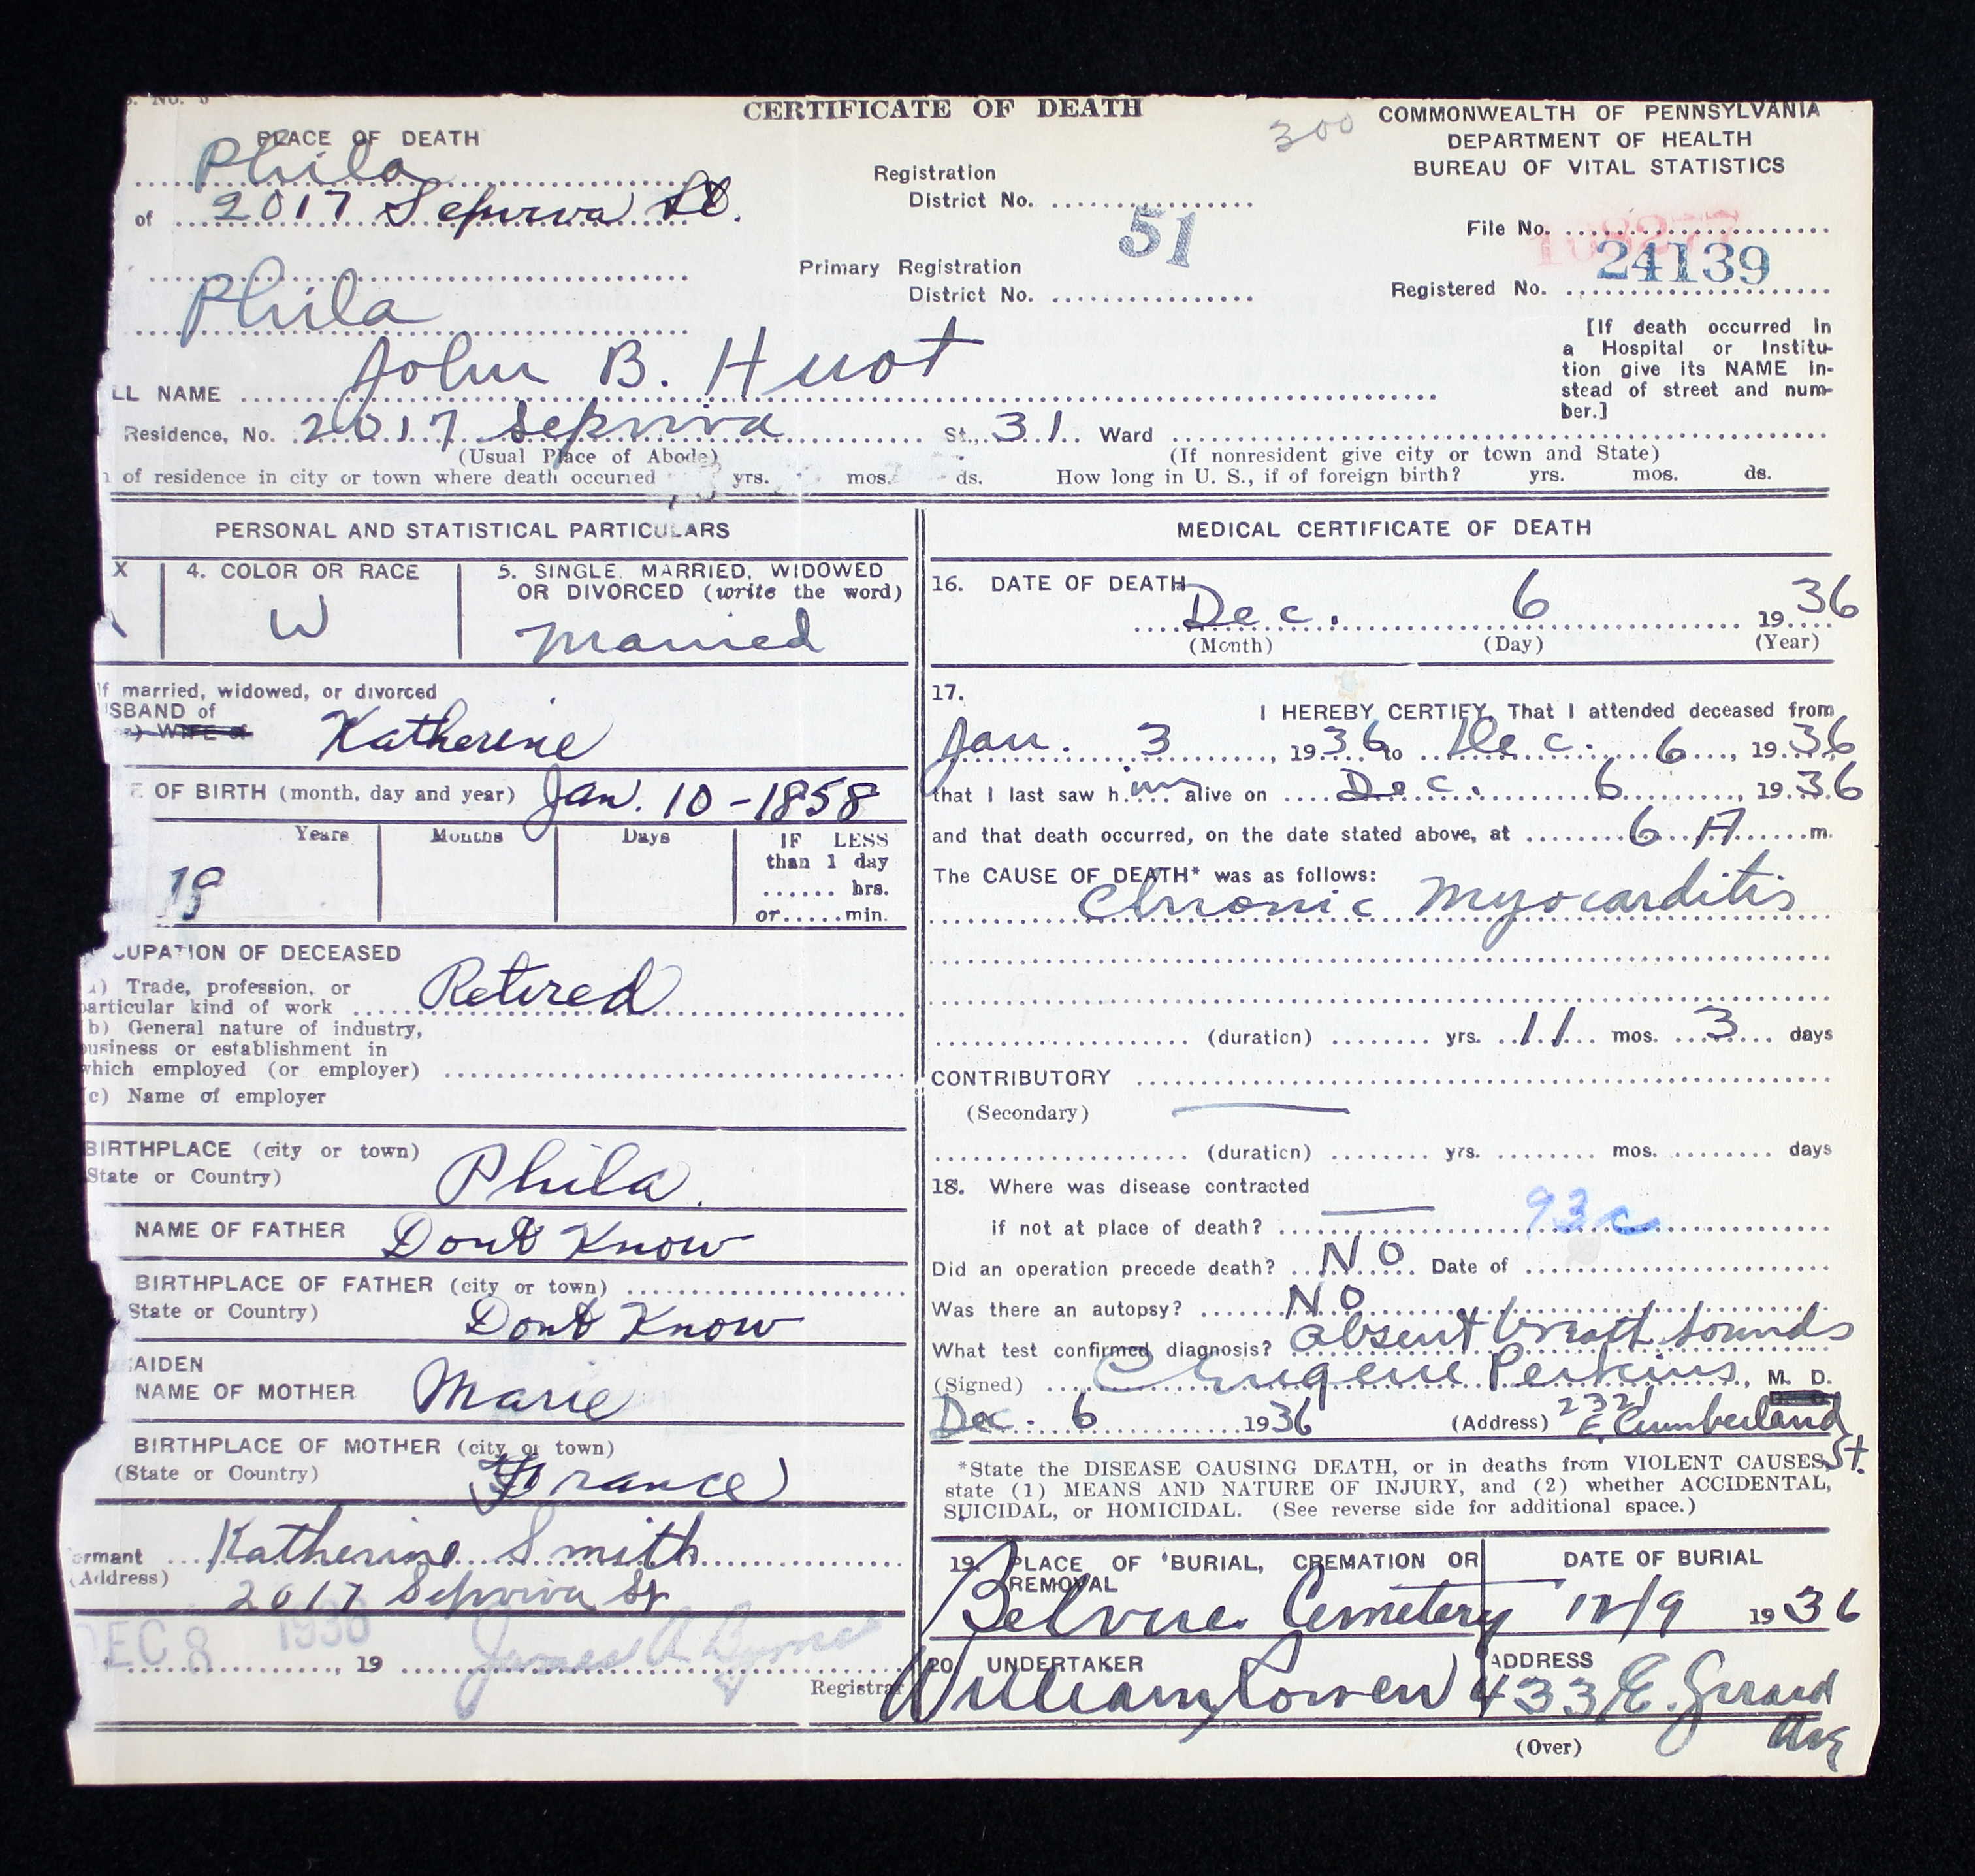 CERTIFICATE OF DEATH
300
COMMONWEALTH OF PENNSYLVANIA
DEPARTMENT OF HEALTH
BUREAU OF VITAL STATISTICS
PLACE OF DEATH
Phila
of 2017 Sepviva St.
Phila
Registration
District No.
51
Primary Registration
District No.
File No.
Registered No. 24139
[If death occurred in
a Hospital or Institu-
tion give its NAME in-
stead of street and num-
ber.]
LL NAME John B. Huot
Residence, No. 2017 Sepviva St., 31 Ward
(Usual Place of Abode)
(If nonresident give city or town and State)
of residence in city or town where death occurred yrs. mos. ds. How long in U. S., if of foreign birth? yrs. mos. ds.
PERSONAL AND STATISTICAL PARTICULARS
X
4. COLOR OR RACE
W
5. SINGLE, MARRIED, WIDOWED
OR DIVORCED (write the word)
Married
If married, widowed, or divorced
SBAND of
WIFE of
Katherine
OF BIRTH (month, day and year) Jan. 10-1858
Years Months Days IF LESS
than 1 day
hrs.
or min.
CUPATION OF DECEASED
) Trade, profession, or
particular kind of work Retired
b) General nature of industry,
business or establishment in
which employed (or employer)
c) Name of employer
BIRTHPLACE (city or town)
State or Country) Phila.
NAME OF FATHER Dont Know
BIRTHPLACE OF FATHER (city or town)
State or Country) Dont Know
AIDEN
NAME OF MOTHER Marie
BIRTHPLACE OF MOTHER (city or town)
(State or Country) France
ormant Katherine Smith
(Address) 2017 Sepviva St
DEC 8 1936
, 19 James A
Registrar
MEDICAL CERTIFICATE OF DEATH
16. DATE OF DEATH
Dec. 6 1936
(Month) (Day) (Year)
17.
I HEREBY CERTIFY, That I attended deceased from
Jan. 3, 1936 to Dec. 6, 1936
that I last saw him alive on Dec. 6, 1936
and that death occurred, on the date stated above, at 6 A m.
The CAUSE OF DEATH* was as follows:
Chronic Myocarditis
(duration) yrs. 11 mos. 3 days
CONTRIBUTORY
(Secondary)
(duration) yrs. mos. days
18. Where was disease contracted
if not at place of death? 93c
Did an operation precede death? NO Date of
Was there an autopsy? NO
What test confirmed diagnosis? absent breath sounds
(Signed) C Eugene Perkins, M. D.
Dec. 6 1936 (Address) 2321 E. Cumberland St.
*State the DISEASE CAUSING DEATH, or in deaths from VIOLENT CAUSES,
state (1) MEANS AND NATURE OF INJURY, and (2) whether ACCIDENTAL,
SUICIDAL, or HOMICIDAL. (See reverse side for additional space.)
19. PLACE OF BURIAL, CREMATION OR
REMOVAL
Belvue Cemetery
DATE OF BURIAL
12/9 1936
20. UNDERTAKER
William Rowen
ADDRESS
433 E. Girard
Ave
(Over)